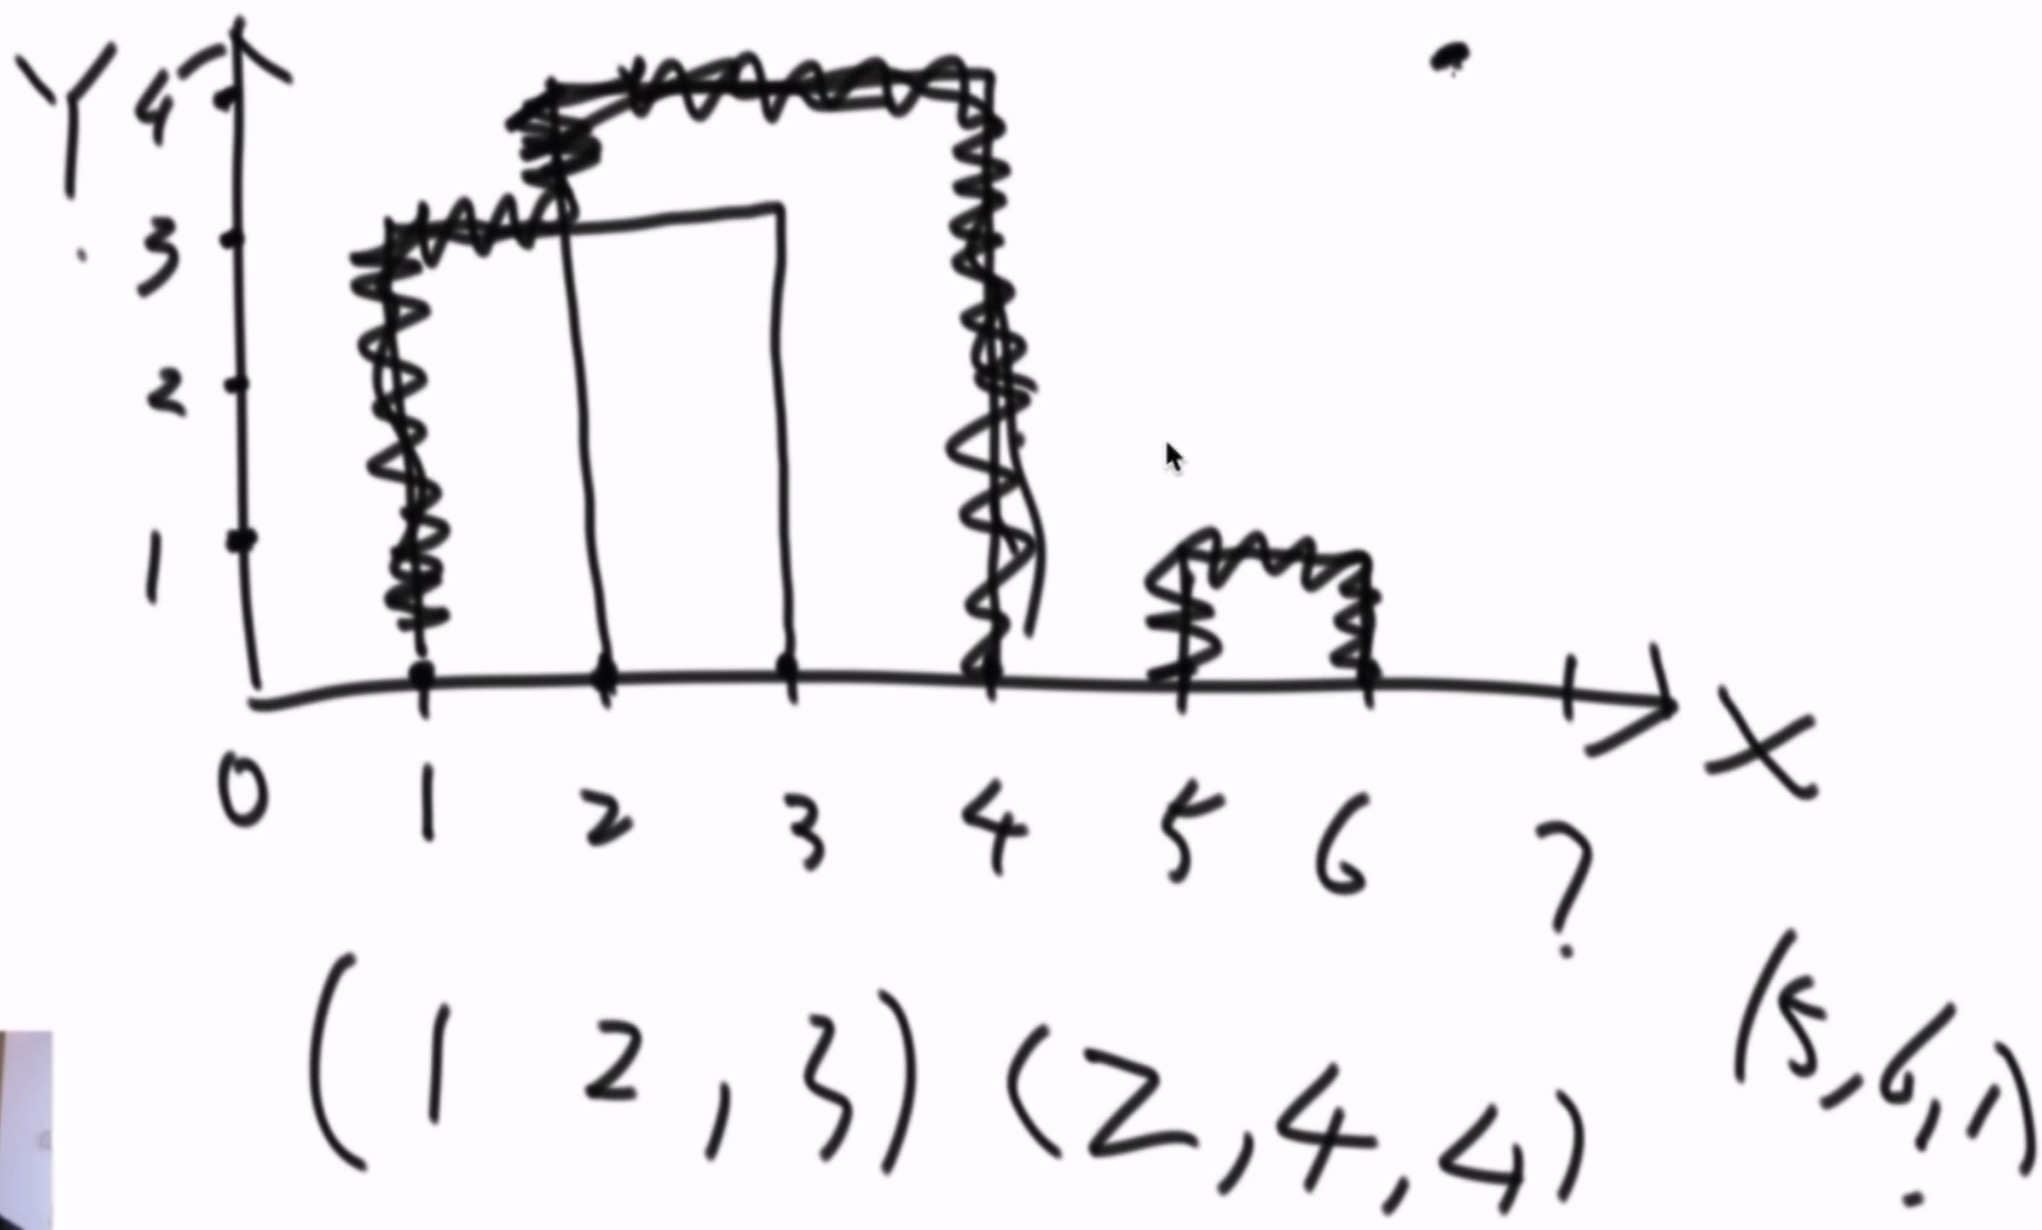 Y
4
3
2
1
0 1 2 3 4 5 6 ? X
(1 2, 3) (2, 4, 4) (5, 6, 1)